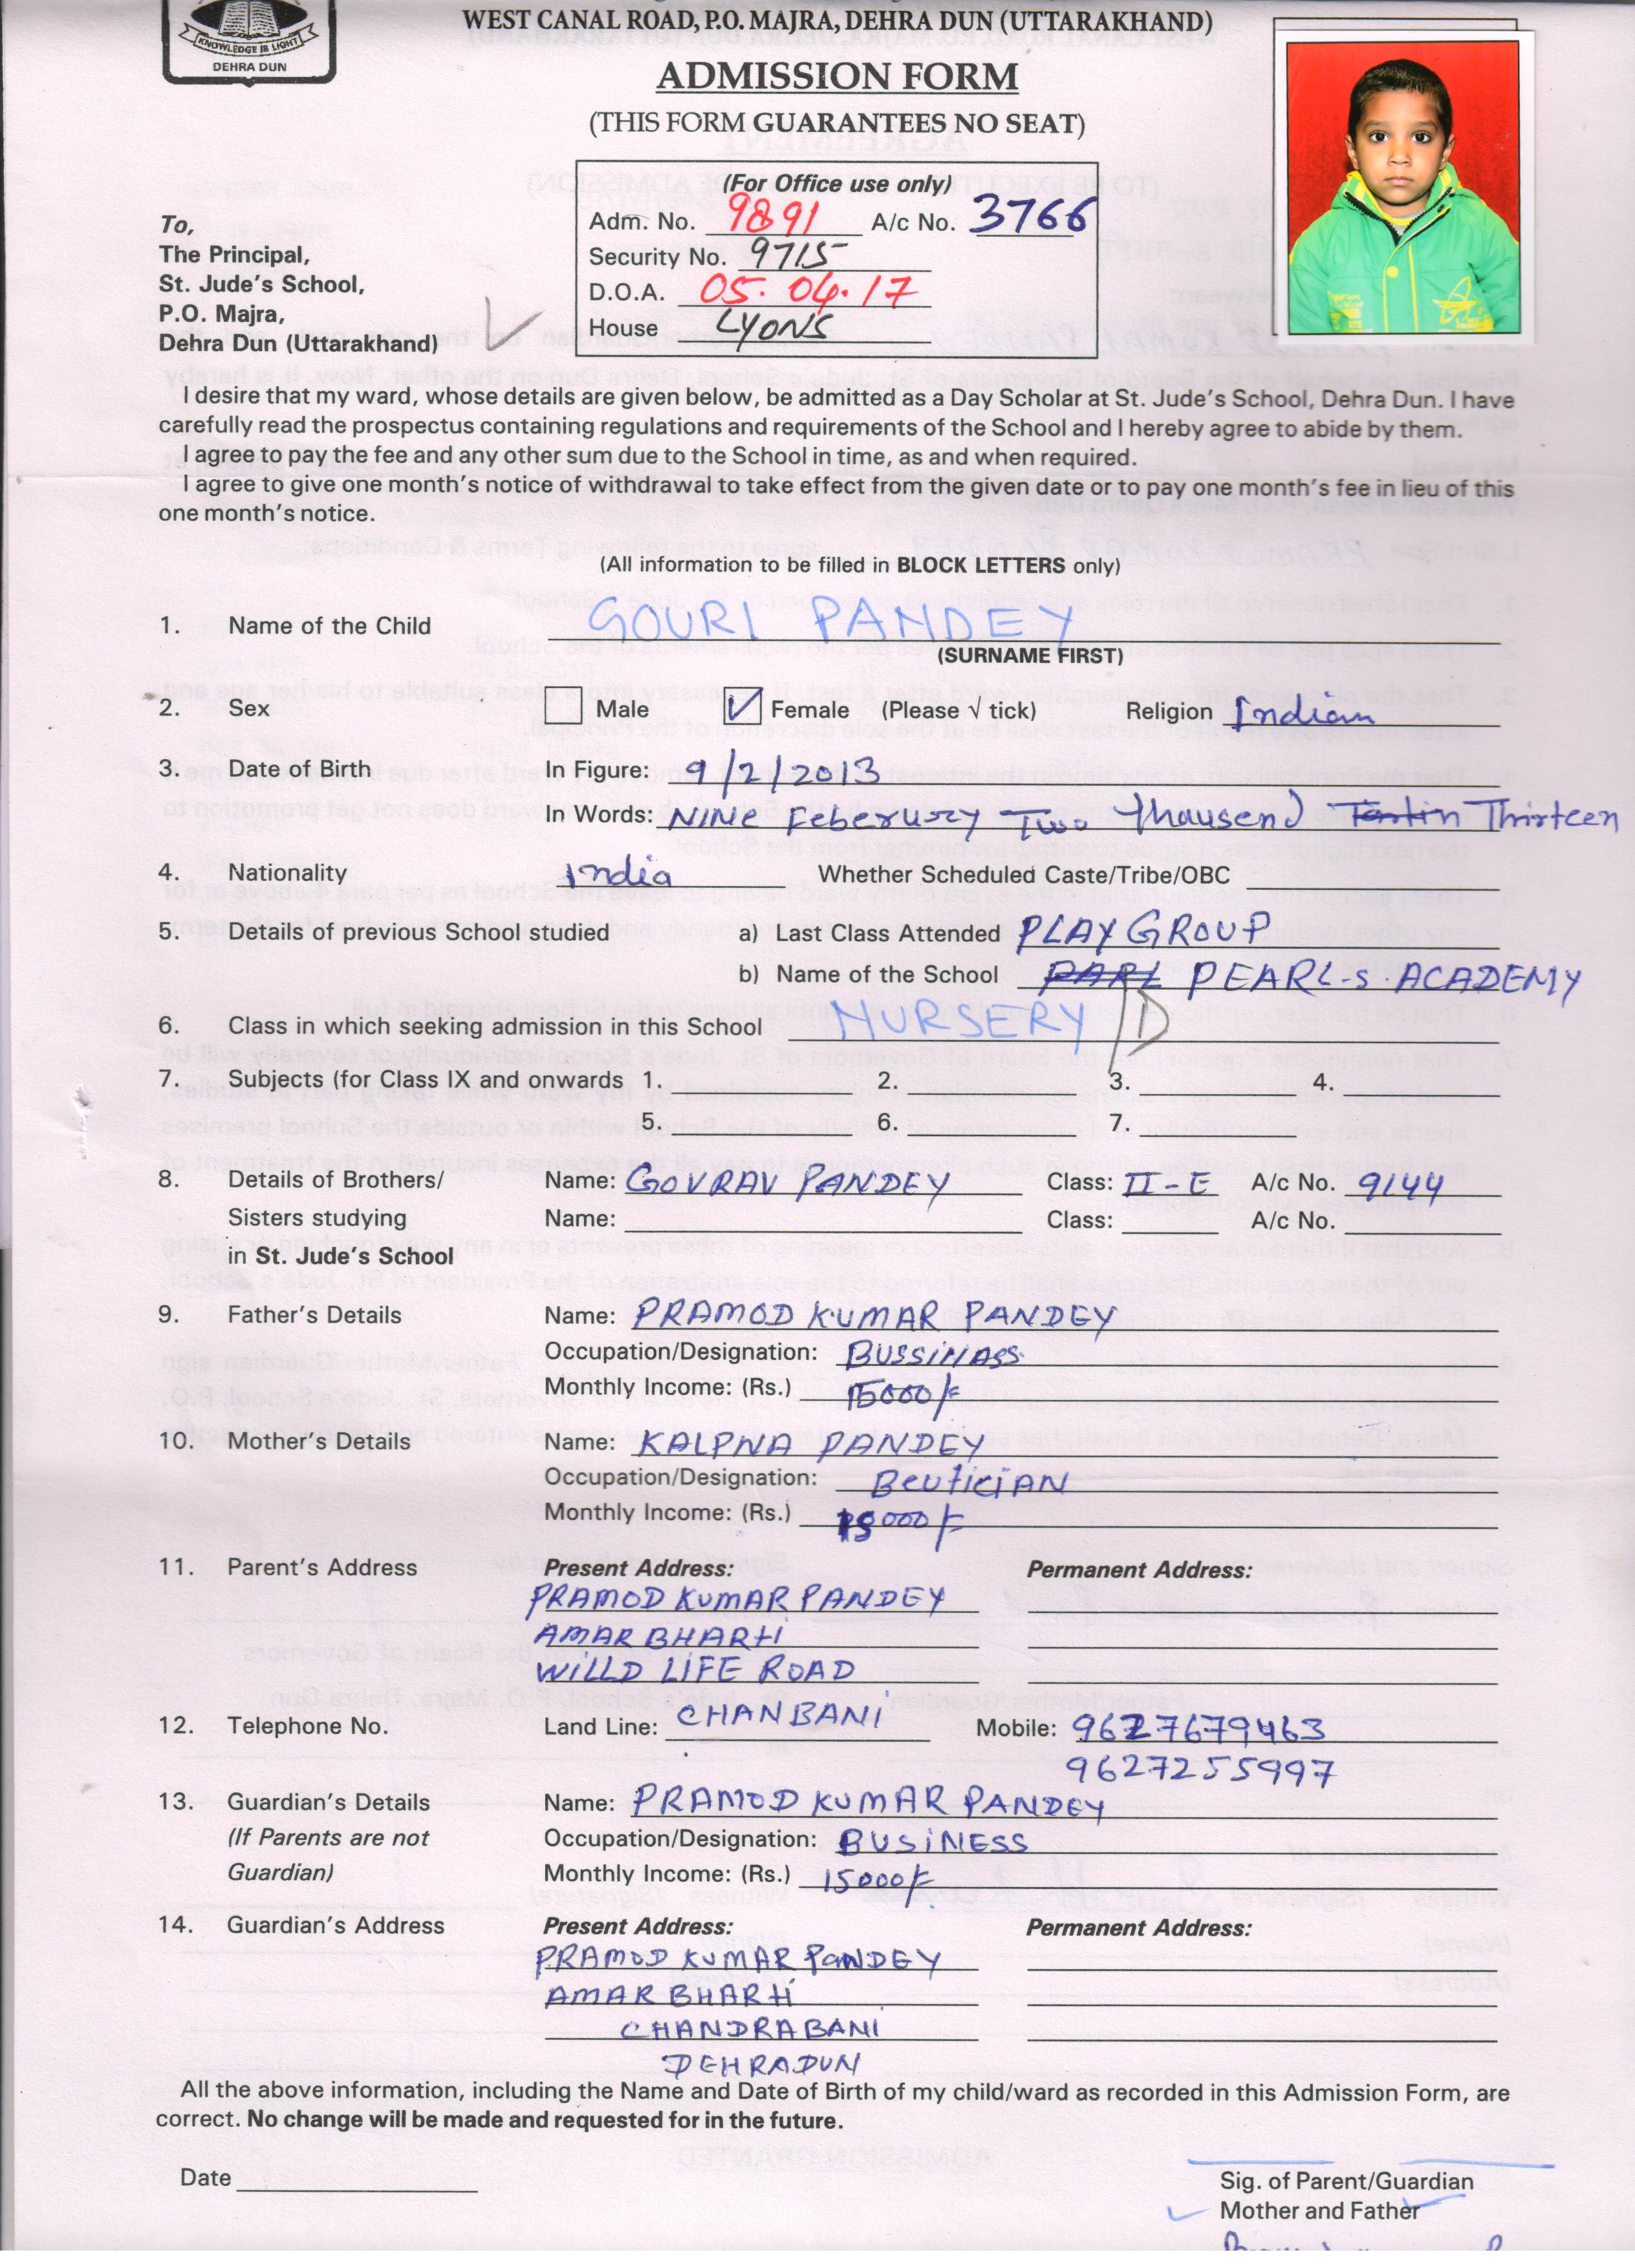 KNOWLEDGE IS LIGHT
DEHRA DUN
WEST CANAL ROAD, P.O. MAJRA, DEHRA DUN (UTTARAKHAND)
ADMISSION FORM
(THIS FORM GUARANTEES NO SEAT)
(For Office use only)
Adm. No. 9891 A/c No. 3766
Security No. 9715
D.O.A. 05.04.17
House LYONS
To,
The Principal,
St. Jude's School,
P.O. Majra,
Dehra Dun (Uttarakhand)
I desire that my ward, whose details are given below, be admitted as a Day Scholar at St. Jude's School, Dehra Dun. I have
carefully read the prospectus containing regulations and requirements of the School and I hereby agree to abide by them.
I agree to pay the fee and any other sum due to the School in time, as and when required.
I agree to give one month's notice of withdrawal to take effect from the given date or to pay one month's fee in lieu of this
one month's notice.
(All information to be filled in BLOCK LETTERS only)
1. Name of the Child GOURI PANDEY
(SURNAME FIRST)
2. Sex Male ✓ Female (Please √ tick) Religion Indian
3. Date of Birth In Figure: 9/2/2013
In Words: NINE Feberuary Two thausend Thirteen
4. Nationality India Whether Scheduled Caste/Tribe/OBC
5. Details of previous School studied a) Last Class Attended PLAY GROUP
b) Name of the School PARL PEARL-S. ACADEMY
6. Class in which seeking admission in this School NURSERY / D
7. Subjects (for Class IX and onwards 1. 2. 3. 4.
5. 6. 7.
8. Details of Brothers/ Name: GOVRAV PANDEY Class: II-E A/c No. 9144
Sisters studying Name: Class: A/c No.
in St. Jude's School
9. Father's Details Name: PRAMOD KUMAR PANDEY
Occupation/Designation: BUSSINASS
Monthly Income: (Rs.) 15000/-
10. Mother's Details Name: KALPNA PANDEY
Occupation/Designation: BeuticiAN
Monthly Income: (Rs.) 15000/-
11. Parent's Address Present Address: Permanent Address:
PRAMOD KUMAR PANDEY
AMAR BHARTI
WILLD LIFE ROAD
12. Telephone No. Land Line: CHANBANI Mobile: 9627679463
9627255997
13. Guardian's Details Name: PRAMOD KUMAR PANDEY
(If Parents are not Occupation/Designation: BUSINESS
Guardian) Monthly Income: (Rs.) 15000/-
14. Guardian's Address Present Address: Permanent Address:
PRAMOD KUMAR PANDEY
AMAR BHARTI
CHANDRABANI
DEHRADUN
All the above information, including the Name and Date of Birth of my child/ward as recorded in this Admission Form, are
correct. No change will be made and requested for in the future.
Date
Sig. of Parent/Guardian
Mother and Father